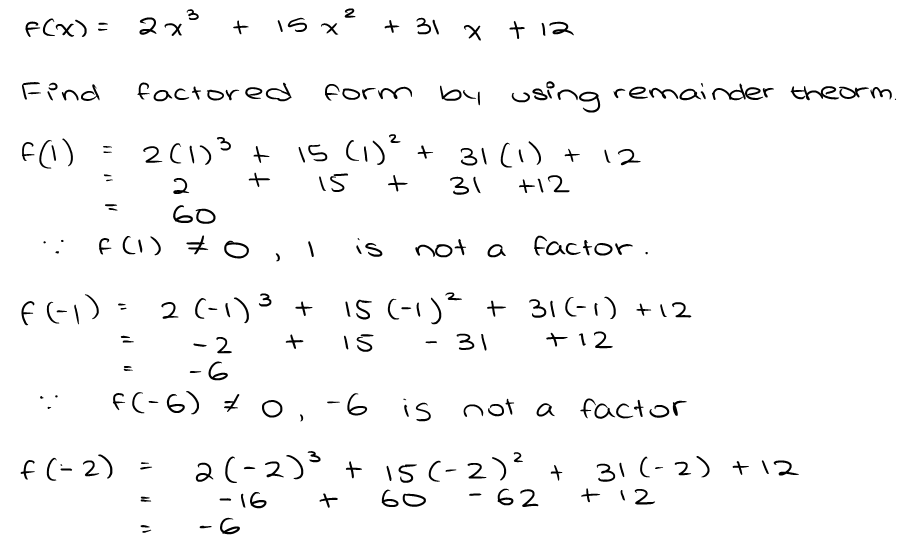 f(x) = 2x³ + 15x² + 31x + 12
Find factored form by using remainder theorm.
f(1) = 2(1)³ + 15(1)² + 31(1) + 12
= 2 + 15 + 31 +12
= 60
∵ f(1) ≠ 0, 1 is not a factor.
f(-1) = 2(-1)³ + 15(-1)² + 31(-1) +12
= -2 + 15 - 31 +12
= -6
∵ f(-6) ≠ 0, -6 is not a factor
f(-2) = 2(-2)³ + 15(-2)² + 31(-2) +12
= -16 + 60 - 62 + 12
= -6